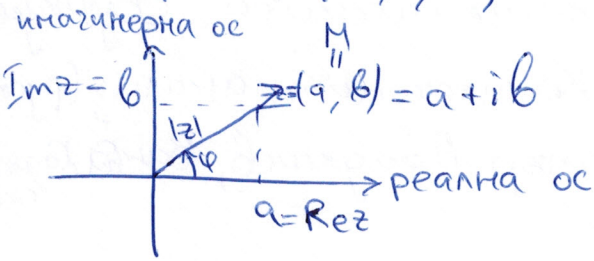 имагинерна ос
M
||
Imz = b z=(a, b) = a + ib
|z|
φ
реална ос
a = Rez